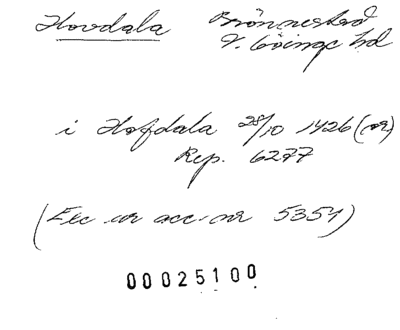 Hovdala Brönnestad
V. Göinge hd
i Hofdala 28/10 1426 (or)
Rep. 6277
(Exc ur acc. nr 5354)
00025100